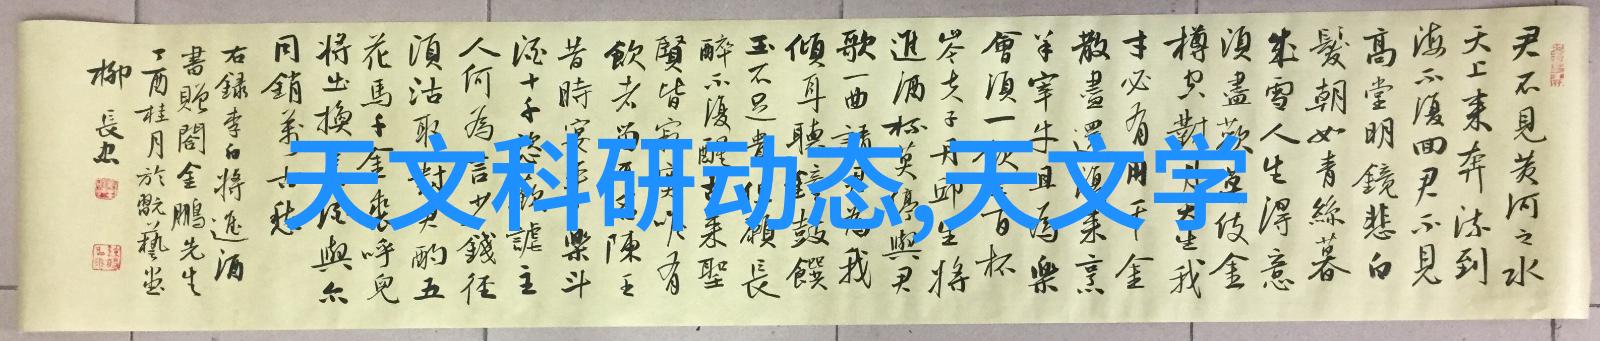 君不見黃河之水
天上來奔流到
海不復回君不見
高堂明鏡悲白
髮朝如青絲暮
成雪人生得意
須盡歡莫使金
樽空對月天生我
才必有用千金
散盡還復來烹
羊宰牛且為樂
會須一飲百杯
岑夫子丹邱生將
進酒杯莫停與君
歌一曲請君為我
傾耳聽鐘鼓饌
玉不足貴但願長
醉不復醒古來聖
賢皆寂寞唯有
飲者留其名陳王
昔時宴平樂斗
酒十千恣歡謔主
人何為言少錢徑
須沽取對君酌五
花馬千金裘呼兒
將出換美酒與尒
同銷萬古愁
右錄李白將進酒
書贈閣金鵬先生
丁酉桂月於翫藝堂
柳長忠
天文科研动态,天文学